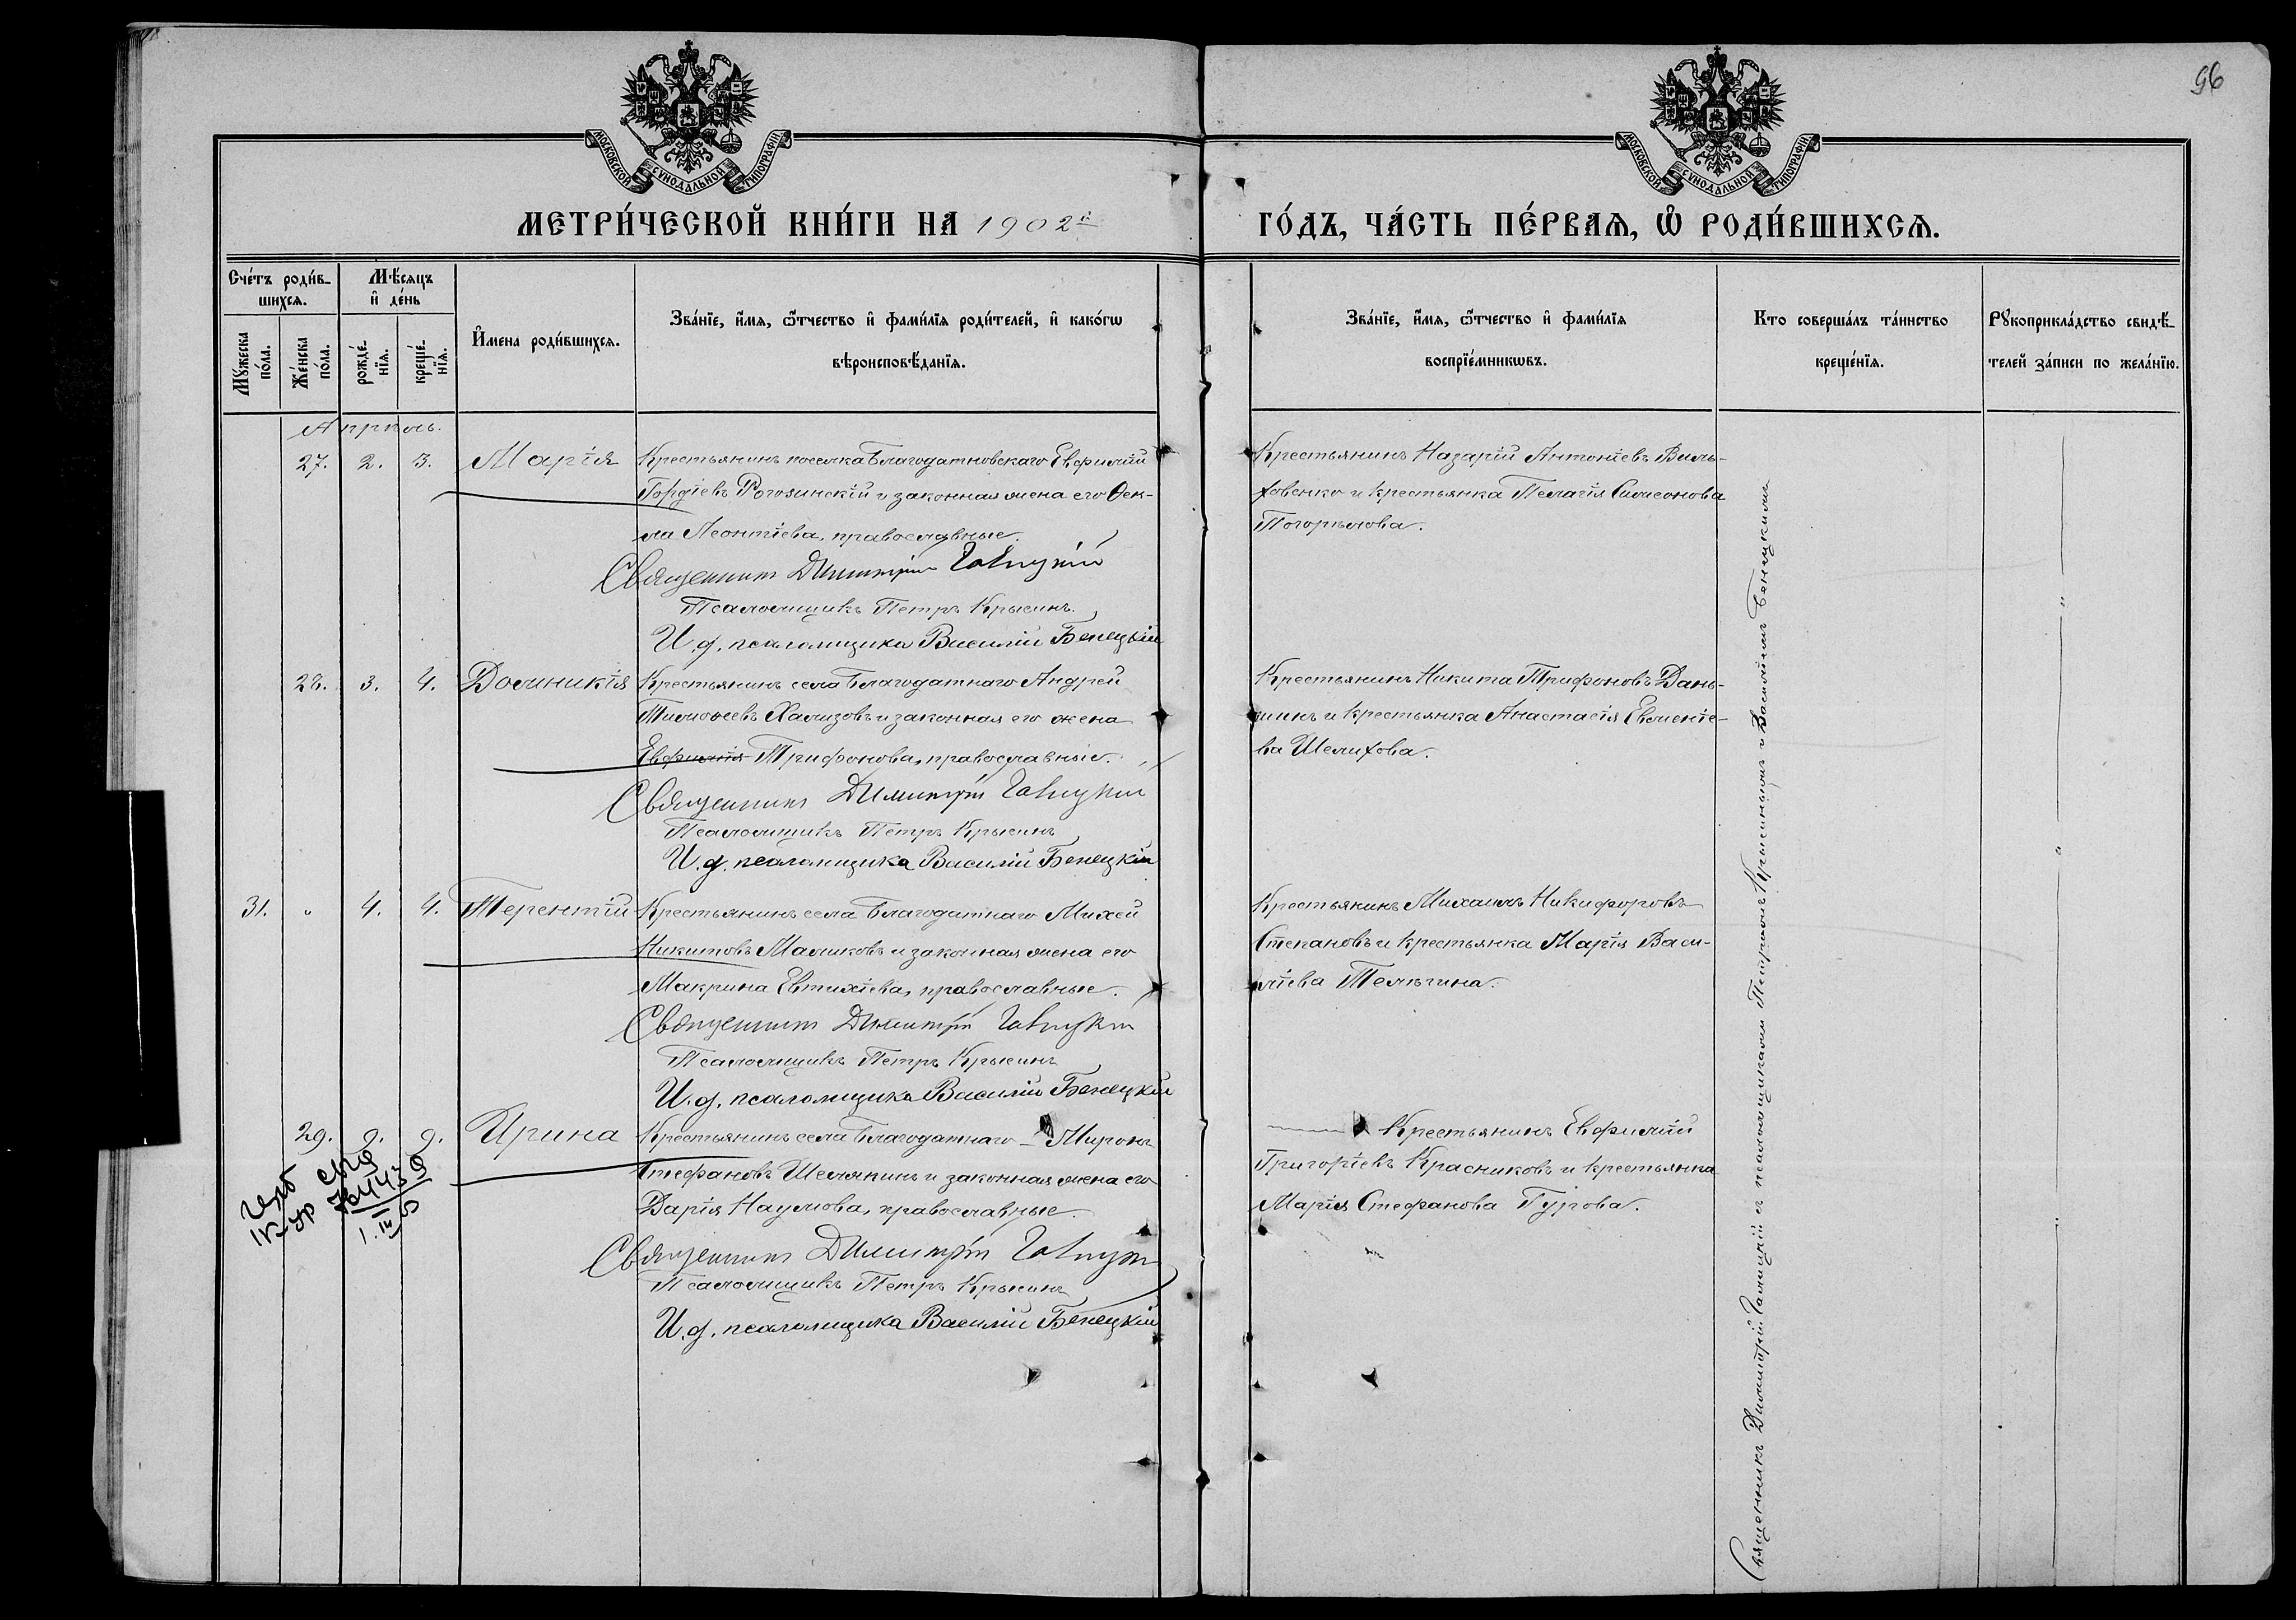 96
МОСКОВСКОЙ СѴНОДАЛЬНОЙ ТИПОГРАФІИ
МОСКОВСКОЙ СѴНОДАЛЬНОЙ ТИПОГРАФІИ
МЕТРИ́ЧЕСКОЙ КНИ́ГИ НА 1902й
ГО́ДЪ, ЧА́СТЬ ПЕ́РВАѦ, Ѽ РОДИ́ВШИХСѦ.
Сче́тъ роди́в-
шихсѧ.
Мꙋ́жеска по́ла.
Же́нска по́ла.
Мѣ́сяцъ
и҆ де́нь
рожде́-
нїѧ.
креще́-
нїѧ.
И҆мена роди́вшихсѧ.
Зва́нїе, и҆́мѧ, ѻ҆́тчество и҆ фами́лїѧ роди́телей, и҆ како́гѡ
вѣроисповѣ́данїѧ.
Зва́нїе, и҆́мѧ, ѻ҆́тчество и҆ фами́лїѧ
воспрїе́мникѡвъ.
Кто соверша́лъ та́инство
креще́нїѧ.
Рꙋкоприкла́дство свидѣ́-
телей за́писи по жела́нїю.
Апрѣль.
27. 2. 3. Марія
Крестьянинъ поселка Благодатновскаго Евфимій
Гордіевъ Рогозинскій и законная жена его Ѳек-
ла Леонтіева, православные.
Священникъ Димитрій Галицкій
Псаломщикъ Петръ Крысинъ.
И. д. псаломщика Василій Бенецкій
Крестьянинъ Назарій Антоніевъ Виль-
ховенко и крестьянка Пелагія Симеонова
Погорѣлова.
28. 3. 4. Домникія
Крестьянинъ села Благодатнаго Андрей
Тимоѳеевъ Хализовъ и законная его жена
Евфимія Трифонова, православные.
Священникъ Димитрій Галицкій
Псаломщикъ Петръ Крысинъ
И. д. псаломщика Василій Бенецкій
Крестьянинъ Никита Трифоновъ Дань-
шинъ и крестьянка Анастасія Евменіе-
ва Шелихова.
31. " 4. 4. Терентій
Крестьянинъ села Благодатнаго Михей
Никитовъ Маликовъ и законная жена его
Макрина Евтихіева, православные.
Священникъ Димитрій Галицкій
Псаломщикъ Петръ Крысинъ
И. д. псаломщика Василій Бенецкій
Крестьянинъ Михаилъ Никифоровъ
Степановъ и крестьянка Марія Васи-
ліева Телѣгина.
29. 9. 9. Ирина
Крестьянинъ села Благодатнаго - Миронъ
Стефановъ Шелякинъ и законная жена его
Дарія Наумова, православные.
Священникъ Димитрій Галицкій
Псаломщикъ Петръ Крысинъ
И. д. псаломщика Василій Бенецкій
Крестьянинъ Евфимій
Григоріевъ Красниковъ и крестьянка
Марія Стефанова Гурова.
Священникъ Димитрій Галицкій съ псаломщиками Петромъ Крысинымъ и Василіемъ Бенецкимъ